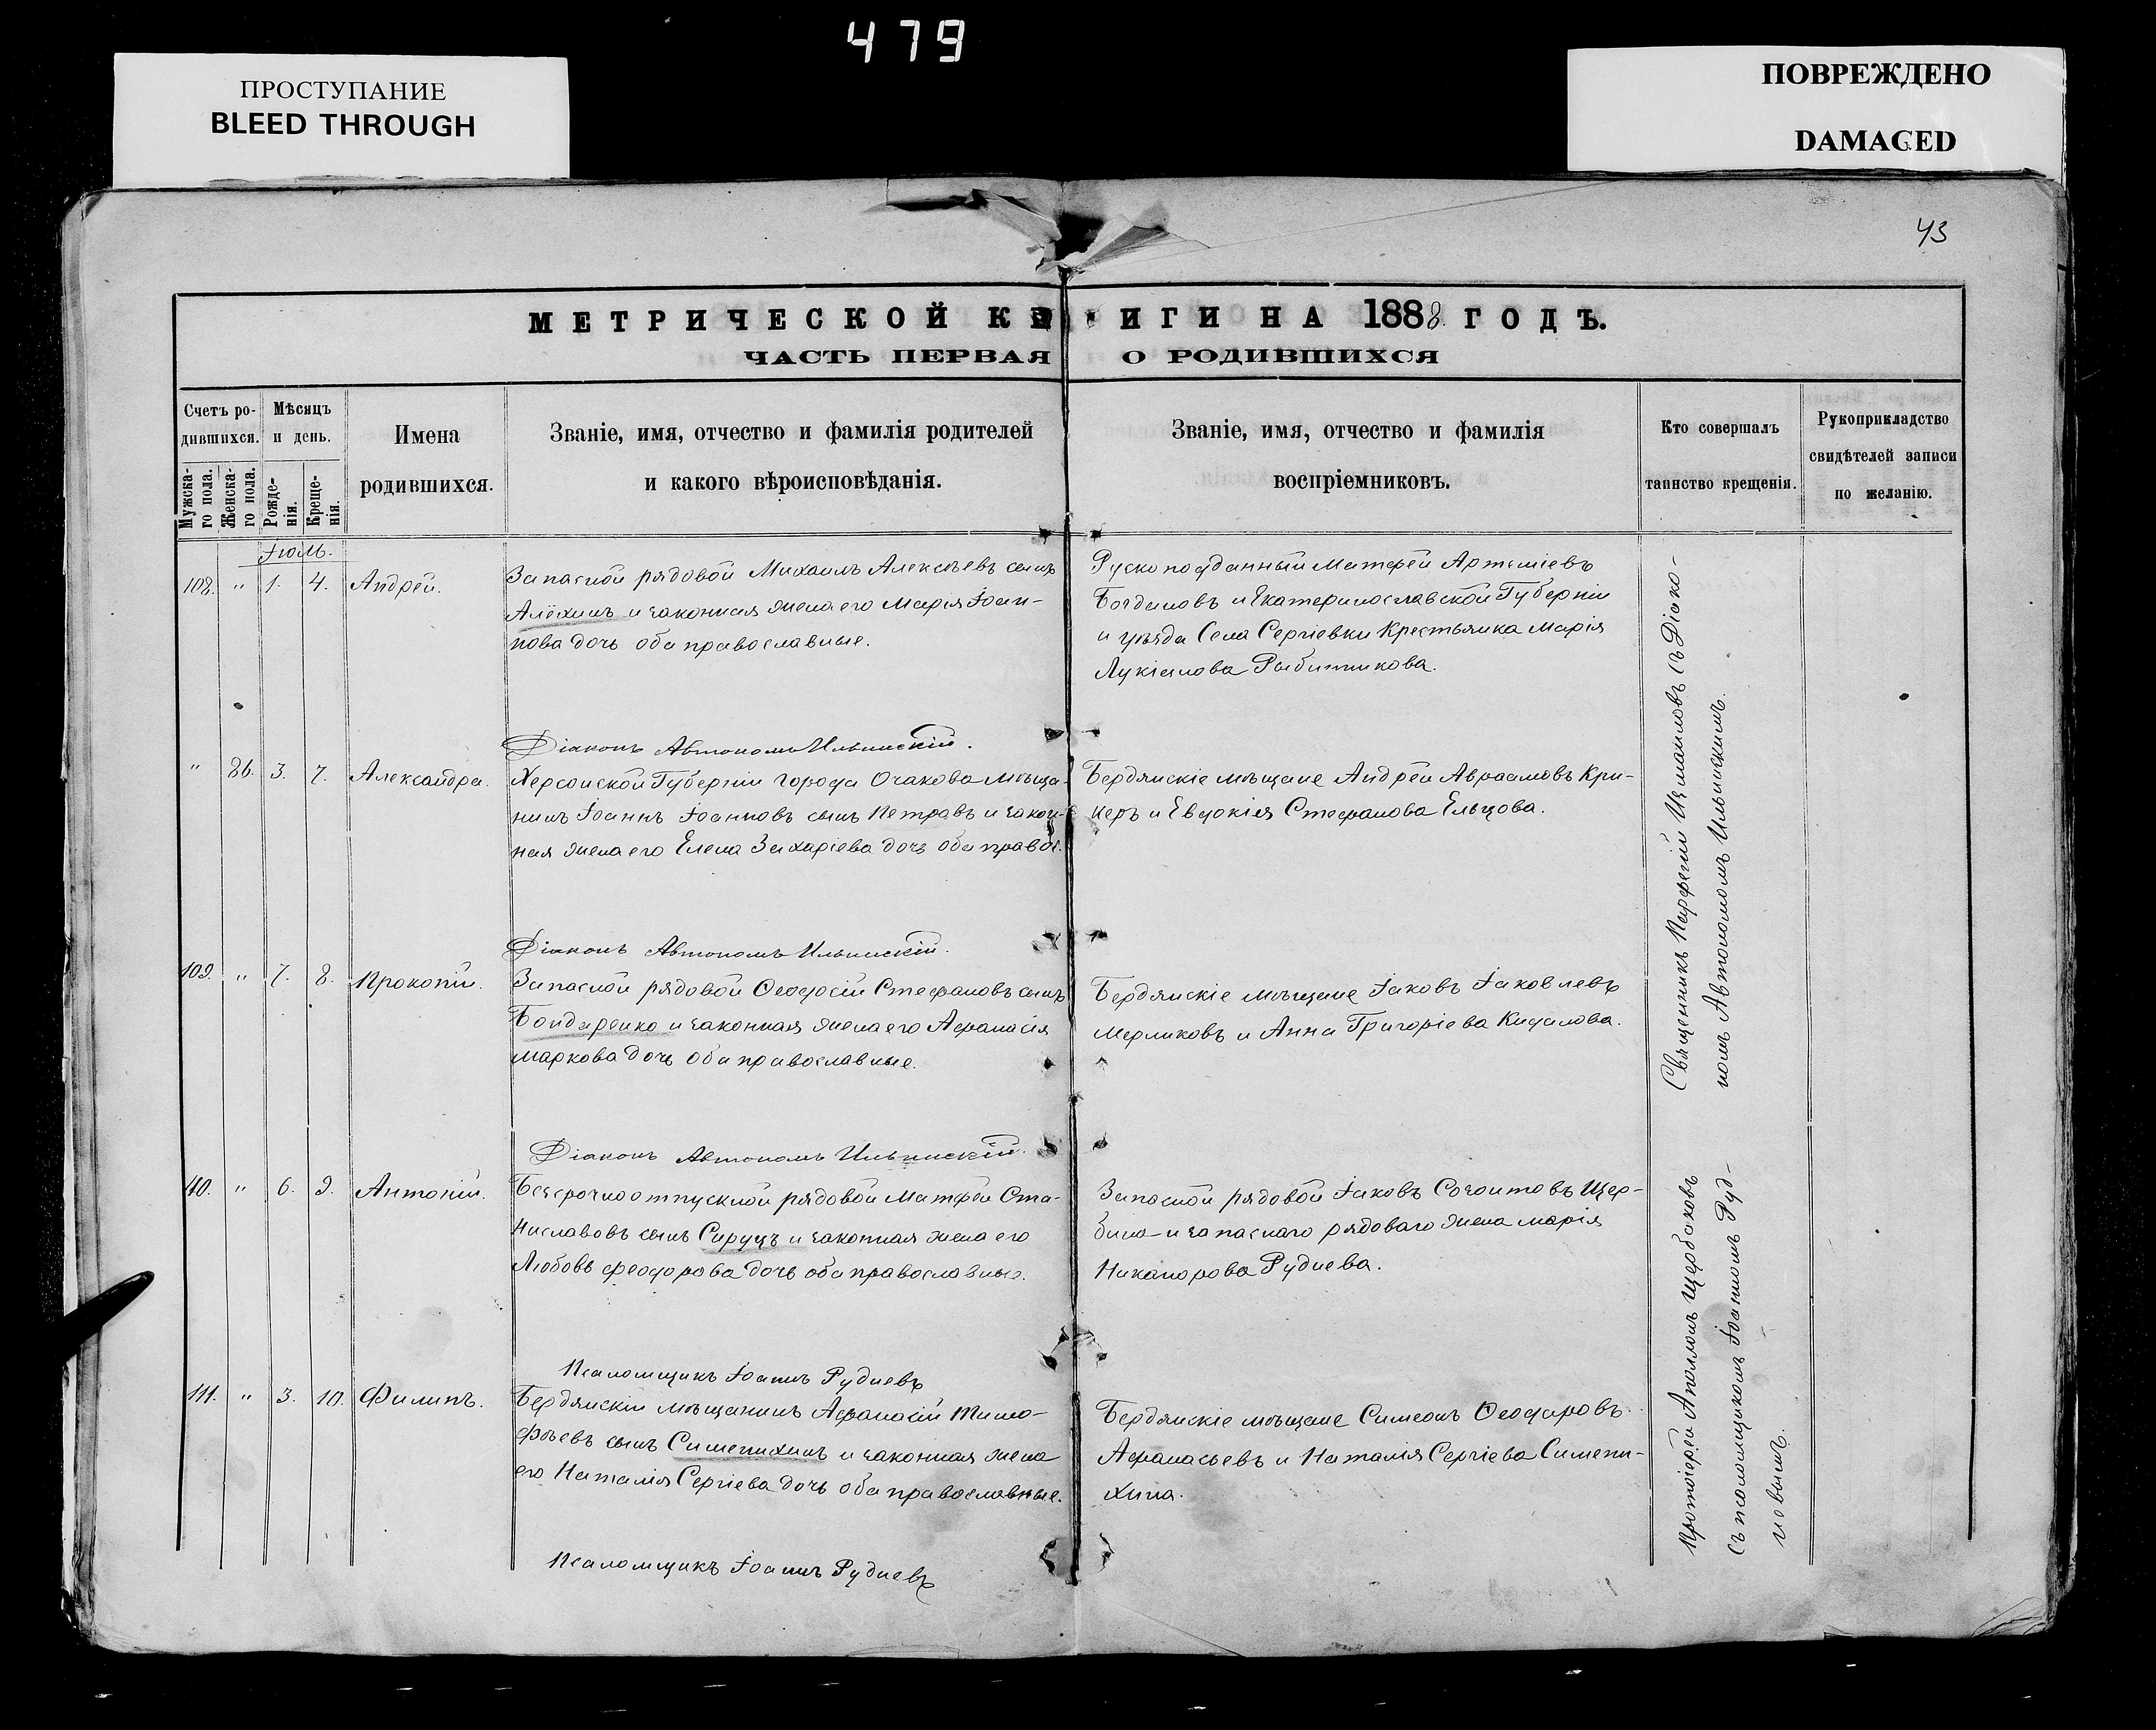 479
ПРОСТУПАНИЕ
BLEED THROUGH
ПОВРЕЖДЕНО
DAMAGED
43
МЕТРИЧЕСКОЙ КНИГИ НА 1888 ГОДЪ.
ЧАСТЬ ПЕРВАЯ О РОДИВШИХСЯ
Счетъ ро-
дившихся.
Мужска-
го пола.
Женска-
го пола.
Мѣсяцъ
и день.
Рожде-
нія.
Креще-
нія.
Имена
родившихся.
Званіе, имя, отчество и фамилія родителей
и какого вѣроисповѣданія.
Званіе, имя, отчество и фамилія
воспріемниковъ.
Кто совершалъ
таинство крещенія.
Рукоприкладство
свидѣтелей записи
по желанію.
Іюль.
108. " 1. 4. Андрей.
Запасной рядовой Михаилъ Алексѣевъ сынъ
Алёхинъ и законная жена его Марія Іоан-
нова дочь оба православные.
Рускоподданный Матфей Артеміевъ
Богдановъ и Екатеринославской Губерніи
и уѣзда Села Сергіевки Крестьянка Марія
Лукіанова Рыбитникова.
Діаконъ Автономъ Ильинскій.
" 86. 3. 7. Александра.
Херсонской Губерніи города Очакова мѣща-
нинъ Іоаннъ Іоанновъ сынъ Петравъ и закон-
ная жена его Елена Захаріева дочь оба правос.
Бердянскіе мѣщане Андрей Авраамовъ Кри-
керъ и Евдокія Стефанова Ельцова.
Діаконъ Автономъ Ильинскій.
109. " 7. 8. Прокопій.
Запасной рядовой Ѳеодосій Стефановъ сынъ
Бондаренко и законная жена его Афанасія
Маркова дочь оба православные.
Бердянскіе мѣщане Іаковъ Іаковлевъ
Мерликовъ и Анна Григоріева Кидалова.
Священникъ Парфеній Измаиловъ съ Діако-
номъ Автономомъ Ильинскимъ.
Діаконъ Автономъ Ильинскій.
110. " 6. 9. Антоній.
Безсрочноотпускной рядовой Матфей Ста-
ниславовъ сынъ Сируцъ и законная жена его
Любовь Феодорова дочь оба православные.
Запасной рядовой Іаковъ Созонтовъ Щер-
бина и запаснаго рядоваго жена Марія
Никанорова Руднева.
Псаломщикъ Іоаннъ Рудневъ
111. " 3. 10. Филипъ.
Бердянскій мѣщанинъ Афанасій Тимо-
фѣевъ сынъ Симепихинъ и законная жена
его Наталія Сергіева дочь оба православные.
Бердянскіе мѣщане Симеонъ Ѳеодоровъ
Афанасьевъ и Наталія Сергіева Симепи-
хина.
Протоіерей Аполлонъ Щербаковъ
съ псаломщикомъ Іоанномъ Руд-
невымъ.
Псаломщикъ Іоаннъ Рудневъ